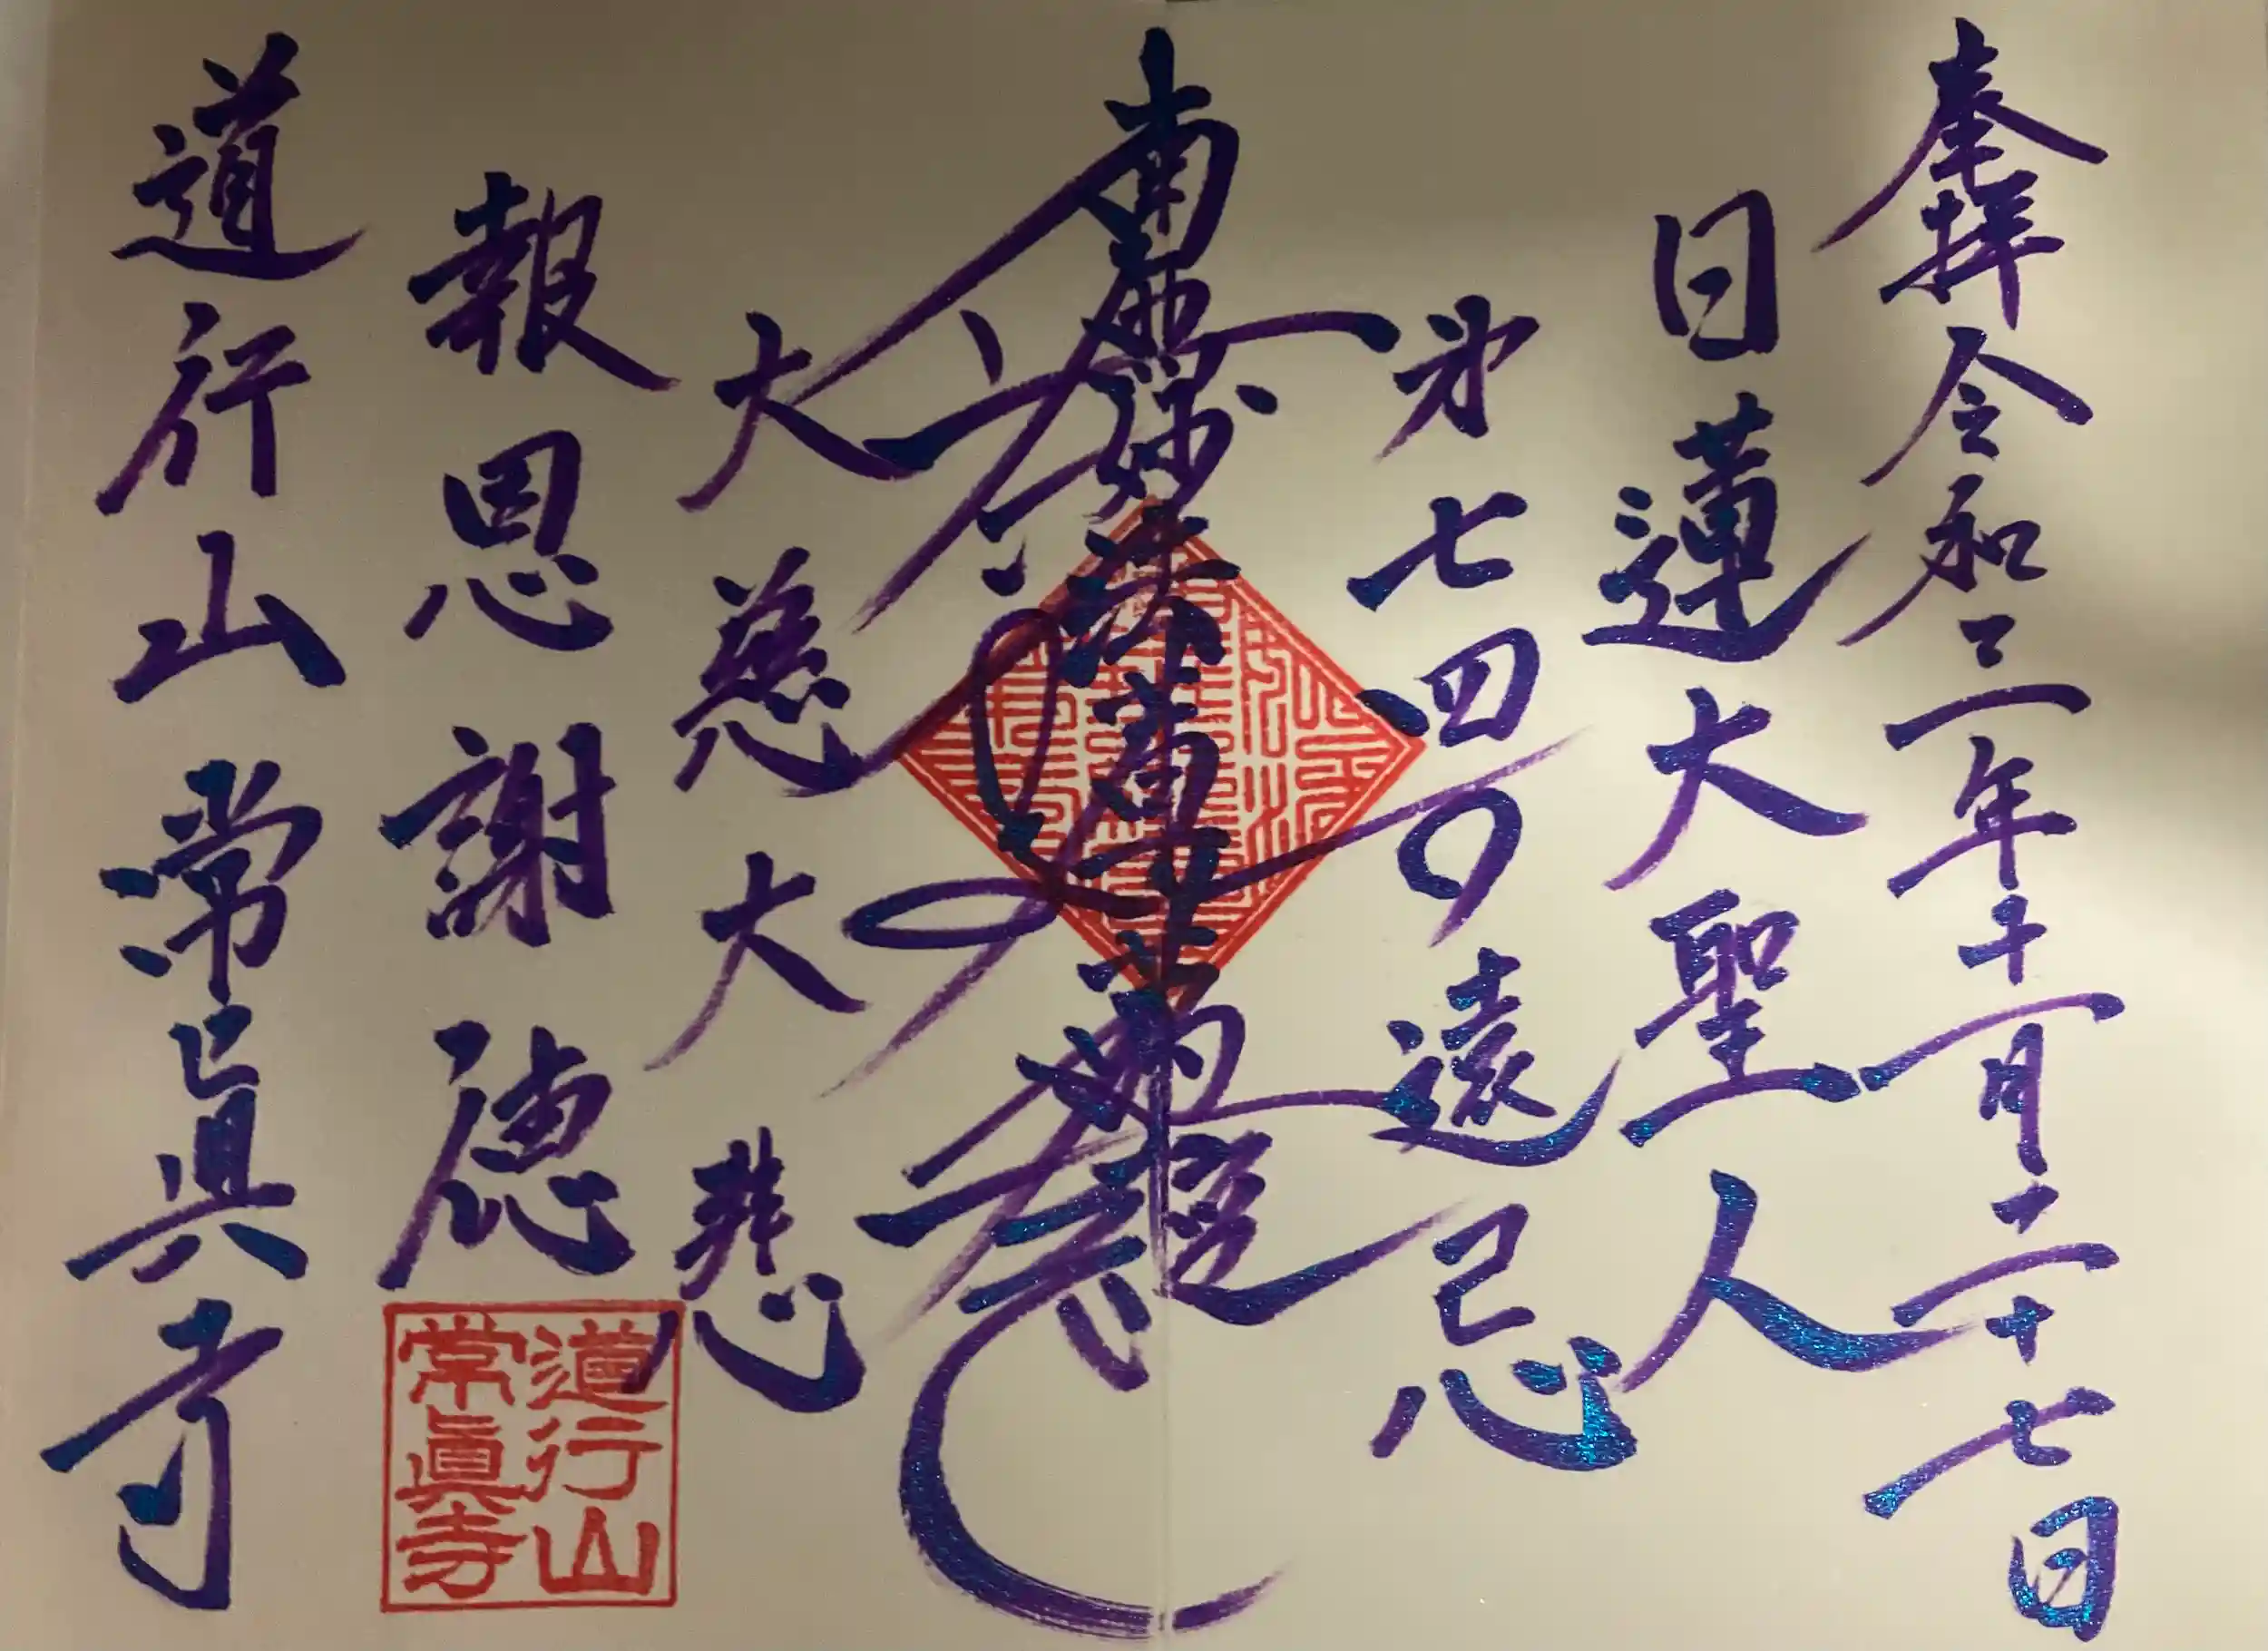 奉拝 令和三年十一月二十七日
日蓮大聖人
第七四〇遠忌
南無妙法蓮華經
大慈大悲
報恩謝徳
道行山 常眞寺
道行山
常眞寺